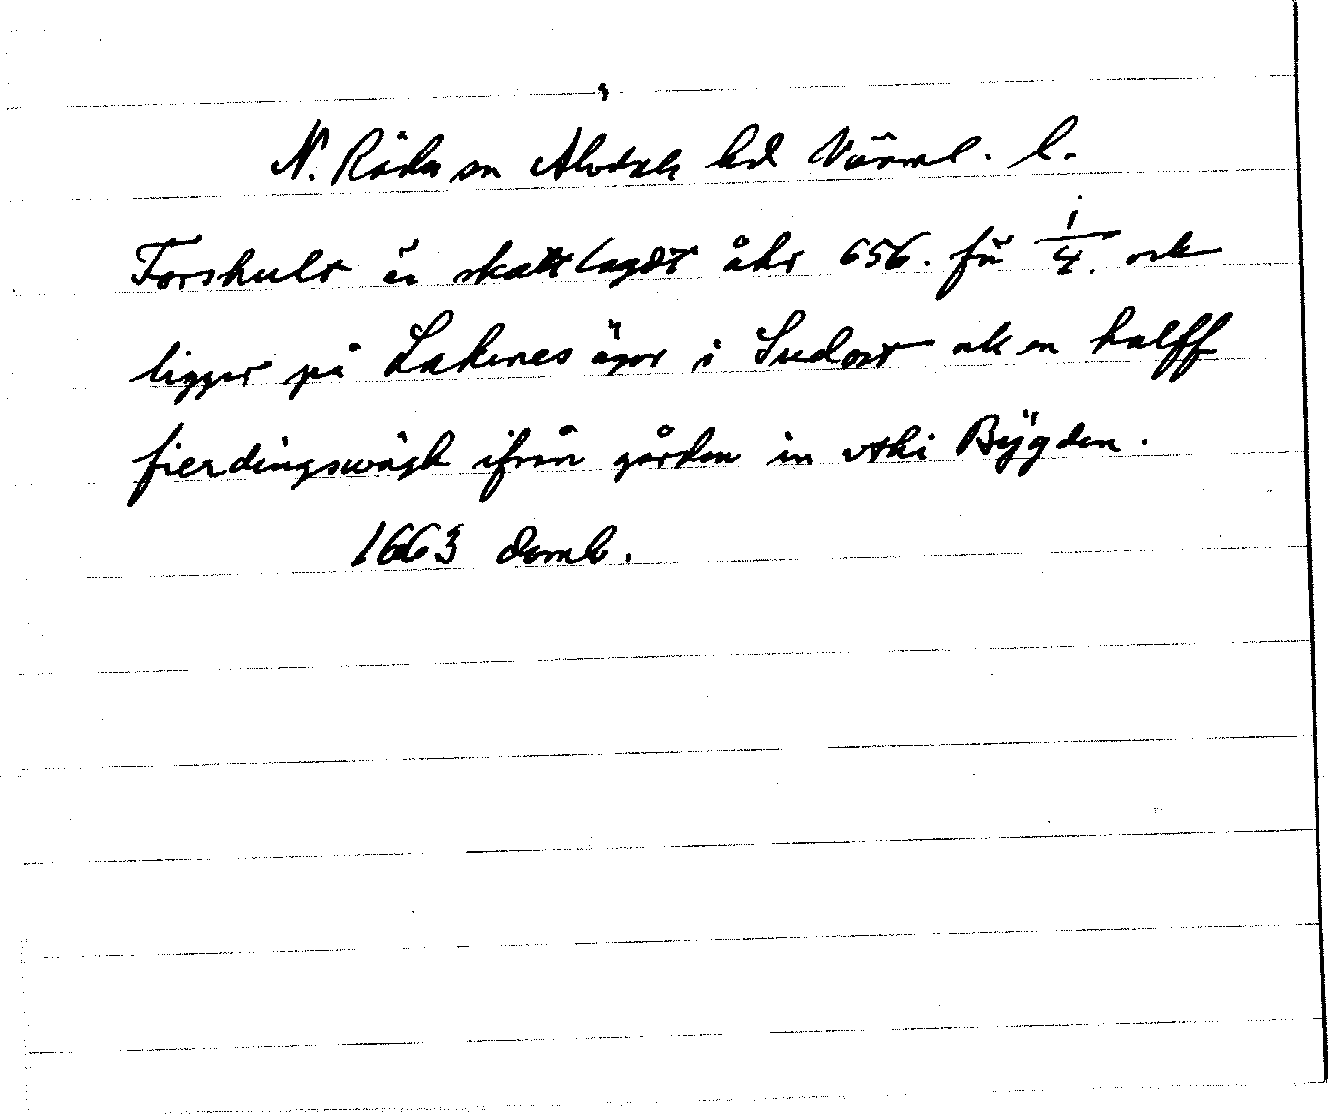 N. Råda sn Älvdals hd Värml. l.
Forshult är skattlagdt åhr 656. för 1/4. och
ligger på Lakenes ägor i Sudost ok en halff
fierdingswägh ifrån gården in uthi Bÿgden.
1663 domb.